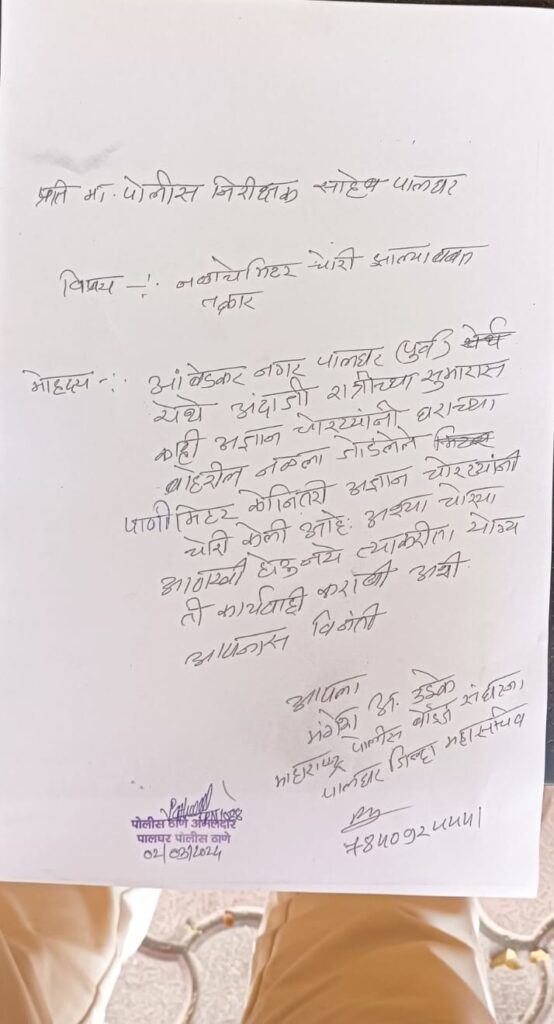 प्रति मा. पोलीस निरीक्षक साहेब पालघर
विषय -: नळाचे मिटर चोरी झाल्याबाबत
तक्रार
मोहदय -: आंबेडकर नगर पालघर (पुर्व)
येथे अंदाजी रात्रीच्या सुमारास
काही अज्ञान चोरट्यांनी घराच्या
बाहेरील नळला जोडलेले
पाणी मिटर कोनितरी अज्ञान चोरट्यांनी
चोरी केली आहे. अश्या चोऱ्या
आणखी होऊ नये त्याकरीता योग्य
ती कार्यवाही करावी अशी
आपनास विनंती
आपला
मंगेश अ. उईके
माहाराष्ट्र पोलीस बॉईज संघटना
पालघर जिल्हा महासचिव
पोलीस ठाणे अंमलदार
पालघर पोलीस ठाणे
02/03/2024